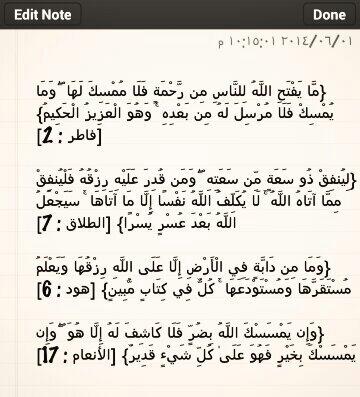 Edit Note
Done
٢٠١٤/٠٦/٠١ ١٠:١٥:٠١ م
{مَّا يَفْتَحِ اللَّهُ لِلنَّاسِ مِن رَّحْمَةٍ فَلَا مُمْسِكَ لَهَا ۖ وَمَا
يُمْسِكْ فَلَا مُرْسِلَ لَهُ مِن بَعْدِهِ ۚ وَهُوَ الْعَزِيزُ الْحَكِيمُ}
[فاطر : 2]
{لِيُنفِقْ ذُو سَعَةٍ مِّن سَعَتِهِ ۖ وَمَن قُدِرَ عَلَيْهِ رِزْقُهُ فَلْيُنفِقْ
مِمَّا آتَاهُ اللَّهُ ۚ لَا يُكَلِّفُ اللَّهُ نَفْسًا إِلَّا مَا آتَاهَا ۚ سَيَجْعَلُ
اللَّهُ بَعْدَ عُسْرٍ يُسْرًا} [الطلاق : 7]
{وَمَا مِن دَابَّةٍ فِي الْأَرْضِ إِلَّا عَلَى اللَّهِ رِزْقُهَا وَيَعْلَمُ
مُسْتَقَرَّهَا وَمُسْتَوْدَعَهَا ۚ كُلٌّ فِي كِتَابٍ مُّبِينٍ} [هود : 6]
{وَإِن يَمْسَسْكَ اللَّهُ بِضُرٍّ فَلَا كَاشِفَ لَهُ إِلَّا هُوَ ۖ وَإِن
يَمْسَسْكَ بِخَيْرٍ فَهُوَ عَلَىٰ كُلِّ شَيْءٍ قَدِيرٌ} [الأنعام : 17]